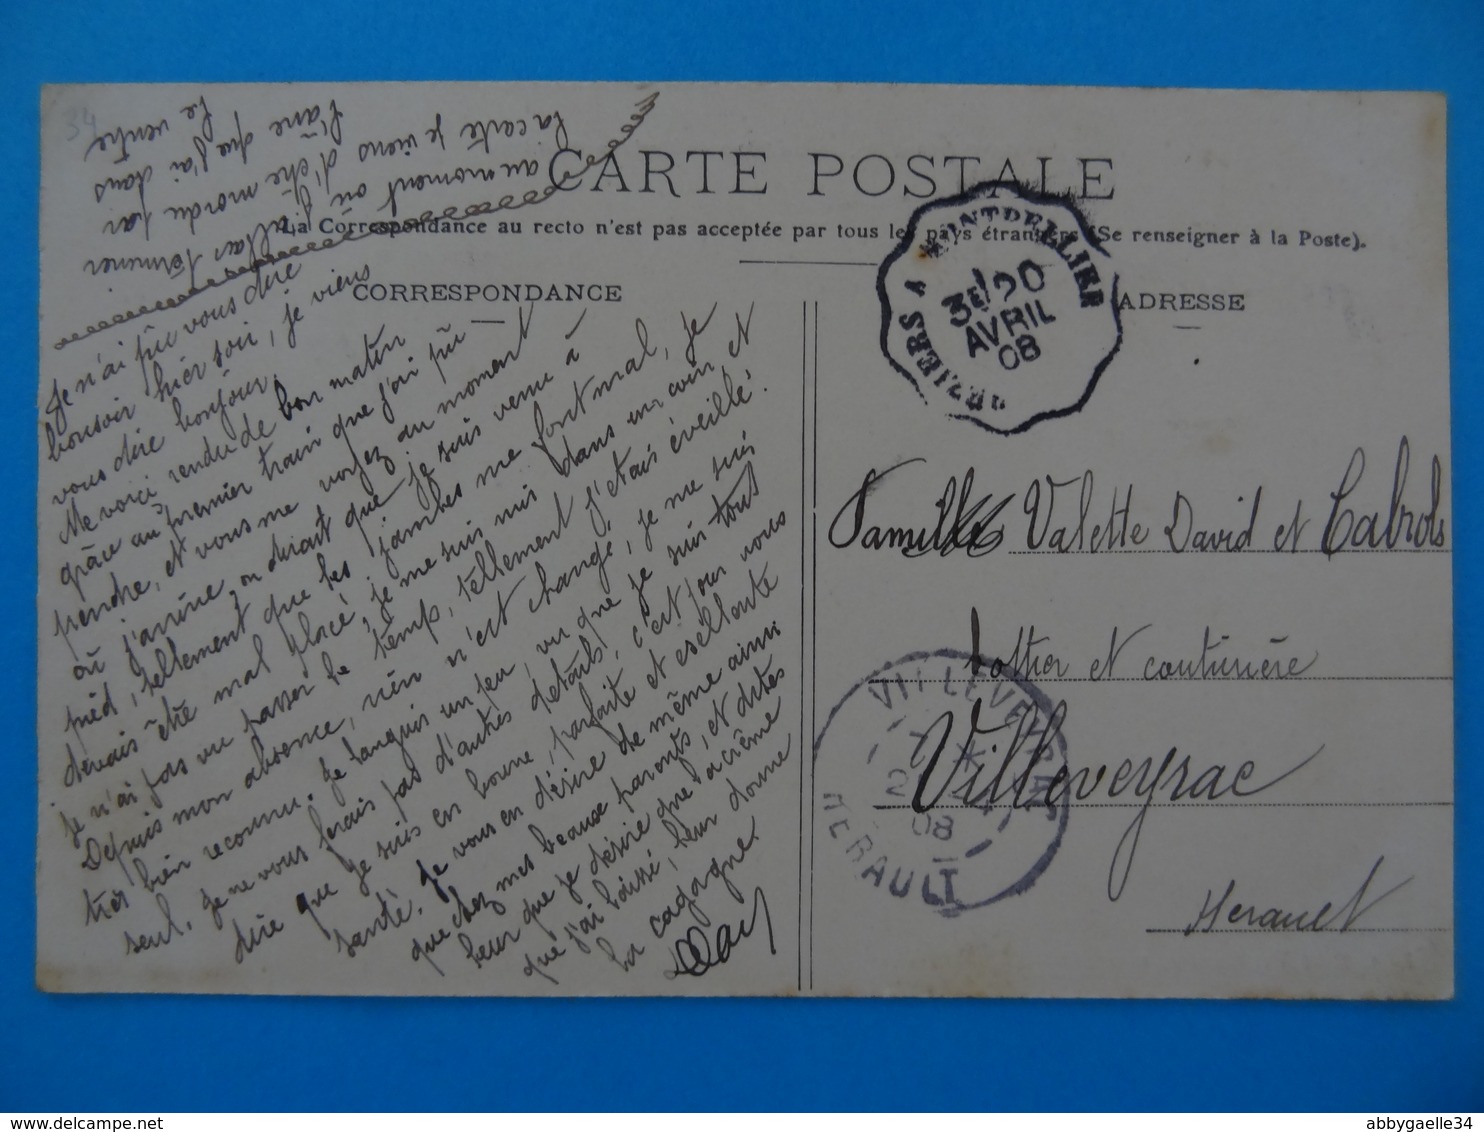 34
au moment où j'allais terminer
la carte je viens d'être mordu par
l'âne que j'ai dans
le ventre
CARTE POSTALE
La Correspondance au recto n'est pas acceptée par tous les pays étrangers (Se renseigner à la Poste).
CORRESPONDANCE
Je n'ai pu vous dire
bonsoir hier soir, je viens
vous dire bonjour.
Me voici rendu de bon matin
grâce au premier train que j'ai pu
prendre, et vous me voyez au moment
où j'arrive, on dirait que je suis venu à
pied, tellement que les jambes me font mal, je
devais être mal placé, je me suis mis dans un coin et
je n'ai pas vu passer le temps, tellement j'étais éveillé!
Depuis mon absence, rien n'est changé, je me suis
très bien reconnu. Je languis un peu, vu que je suis tout
seul. Je ne vous ferais pas d'autres détails, c'est pour vous
dire que je suis en bonne, parfaite et esellente
santé. Je vous en désire de même ainsi
que chez mes beaux parents, et dites
leur que je désire que la crème
que j'ai laissé, leur donne
la cagagne.
ADRESSE
BEZIERS A MONTPELLIER
3E
20
AVRIL
08
Famille Valette David et Cabrols
bottier et couturière
Villeveyrac
Herault
VILLEVEYRAC
08
HERAULT
delcampe.net
abbygaelle34